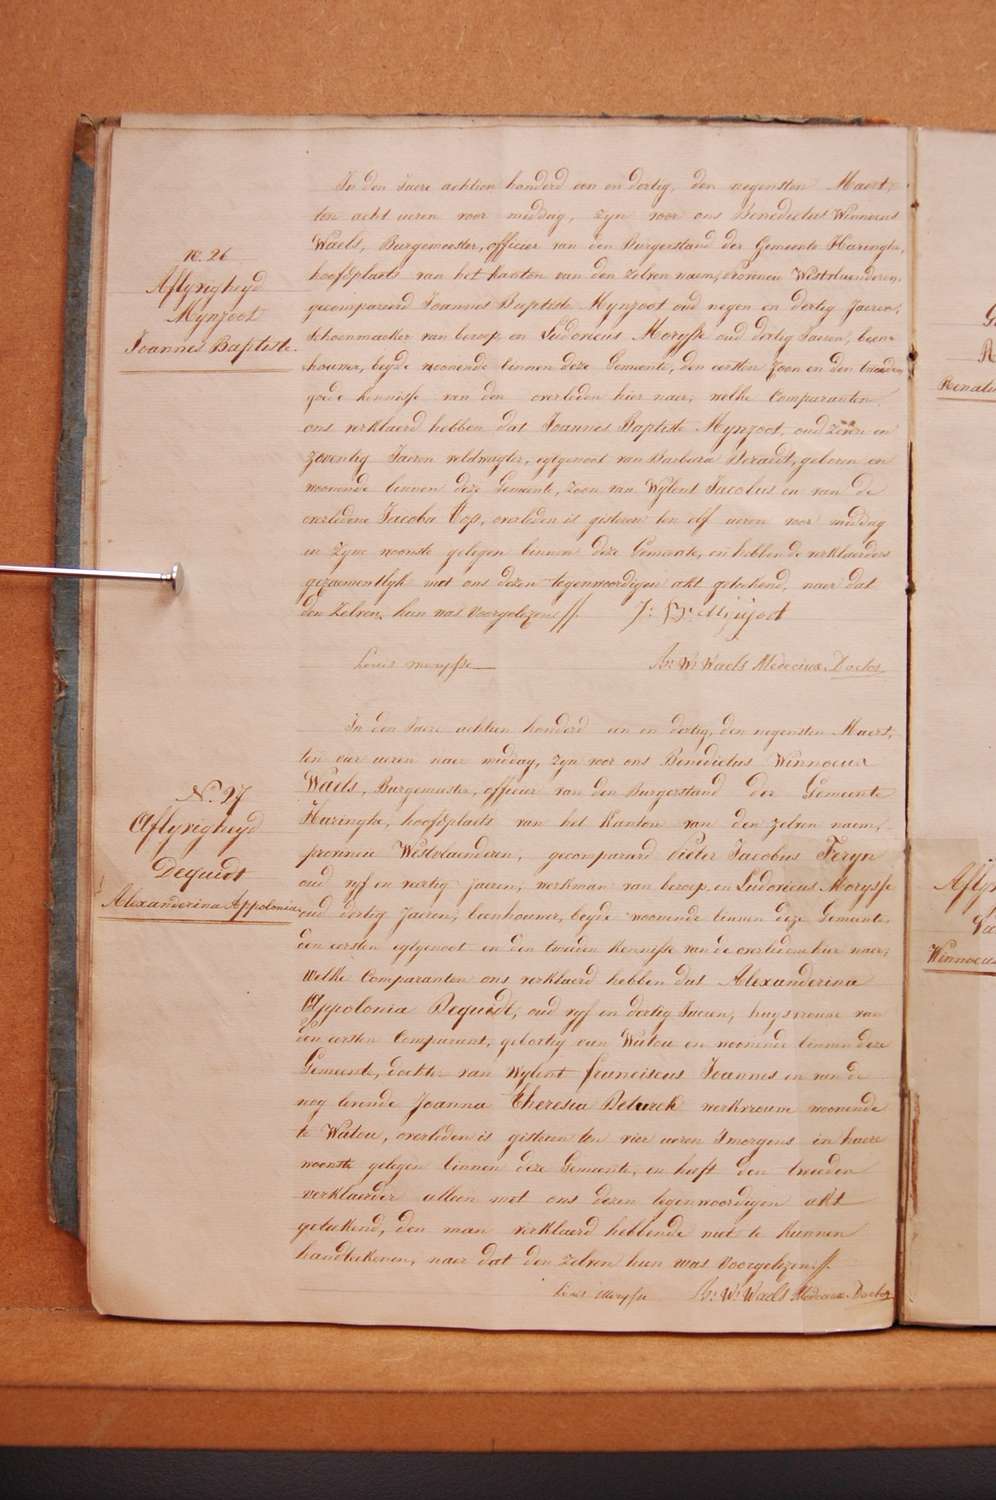 N. 26
Aflyvigheyd
Mynjoot
Joannes Baptiste.
In den Jaere achtien honderd een en dertig, den negensten Maert,
ten acht ueren voor middag, zyn voor ons Benedictus Winnocus
Waels, Burgemeester, officier van den Burgerstand der Gemeente Haringhe,
hoofdplaets van het kanton van den zelven naem, provincie Westvlaenderen,
gecompareerd Joannes Baptiste Mynjoot oud negen en dertig Jaeren,
schoenmaeker van beroep, en Ludovicus Morysse oud dertig Jaeren, been-
houwer, beyde woonende binnen deze Gemeente, den eersten zoon en den tweeden
goede kennisse van den overleden hier naer, welke Comparanten
ons verklaerd hebben dat Joannes Baptiste Mynjoot, oud zeven en
zeventig Jaeren veldwagter, egtgenoot van Barbara Deraedt, geboren en
woonende binnen deze Gemeente, zoon van Wylent Jacobus en van de
overledene Jacoba Top, overleden is gisteren ten elf ueren voor middag
in zyne woonste gelegen binnen deze Gemeente, en hebben de verklaerders
gezaementlyk met ons dezen tegenwoordigen akt geteekend, naer dat
den zelven hun was voorgelezen J: Bt. Mynjoot
Louis Morysse Bn: Wt. Waels Medecinae Doctor
N. 27
Aflyvigheyd
Dequidt
Alexanderina Appolonia
In den Jaere achtien honderd een en dertig, den negensten Maert,
ten vier ueren naer middag, zyn voor ons Benedictus Winnocus
Waels, Burgemeester, officier van den Burgerstand der Gemeente
Haringhe, hoofdplaets van het Kanton van den zelven naem,
provincie Westvlaenderen, gecompareerd Pieter Jacobus Feryn
oud vyf en veertig jaeren, werkman van beroep, en Ludovicus Morysse
oud dertig Jaeren, beenhouwer, beyde woonende binnen deze Gemeente,
den eersten egtgenoot en den tweeden kennisse van de overledene hier naer,
welke Comparanten ons verklaerd hebben dat Alexanderina
Appolonia Dequidt, oud vyf en dertig Jaeren, huysvrouw van
den eersten Comparant, geboortig van Watou en woonende binnen deze
Gemeente, dochter van Wylent franciscus Joannes en van de
nog levende Joanna Theresia Deturck werkvrouw woonende
te Watou, overleden is gisteren ten vier ueren smorgens in haere
woonste gelegen binnen deze Gemeente, en heeft den tweeden
verklaerder alleen met ons dezen tegenwoordigen akt
geteekend, den man verklaerd hebbende niet te kunnen
handteekenen, naer dat den zelven hun was voorgelezen
Louis Morysse Bn: Wt. Waels Medecinae Doctor
Aflyv
Winnocus